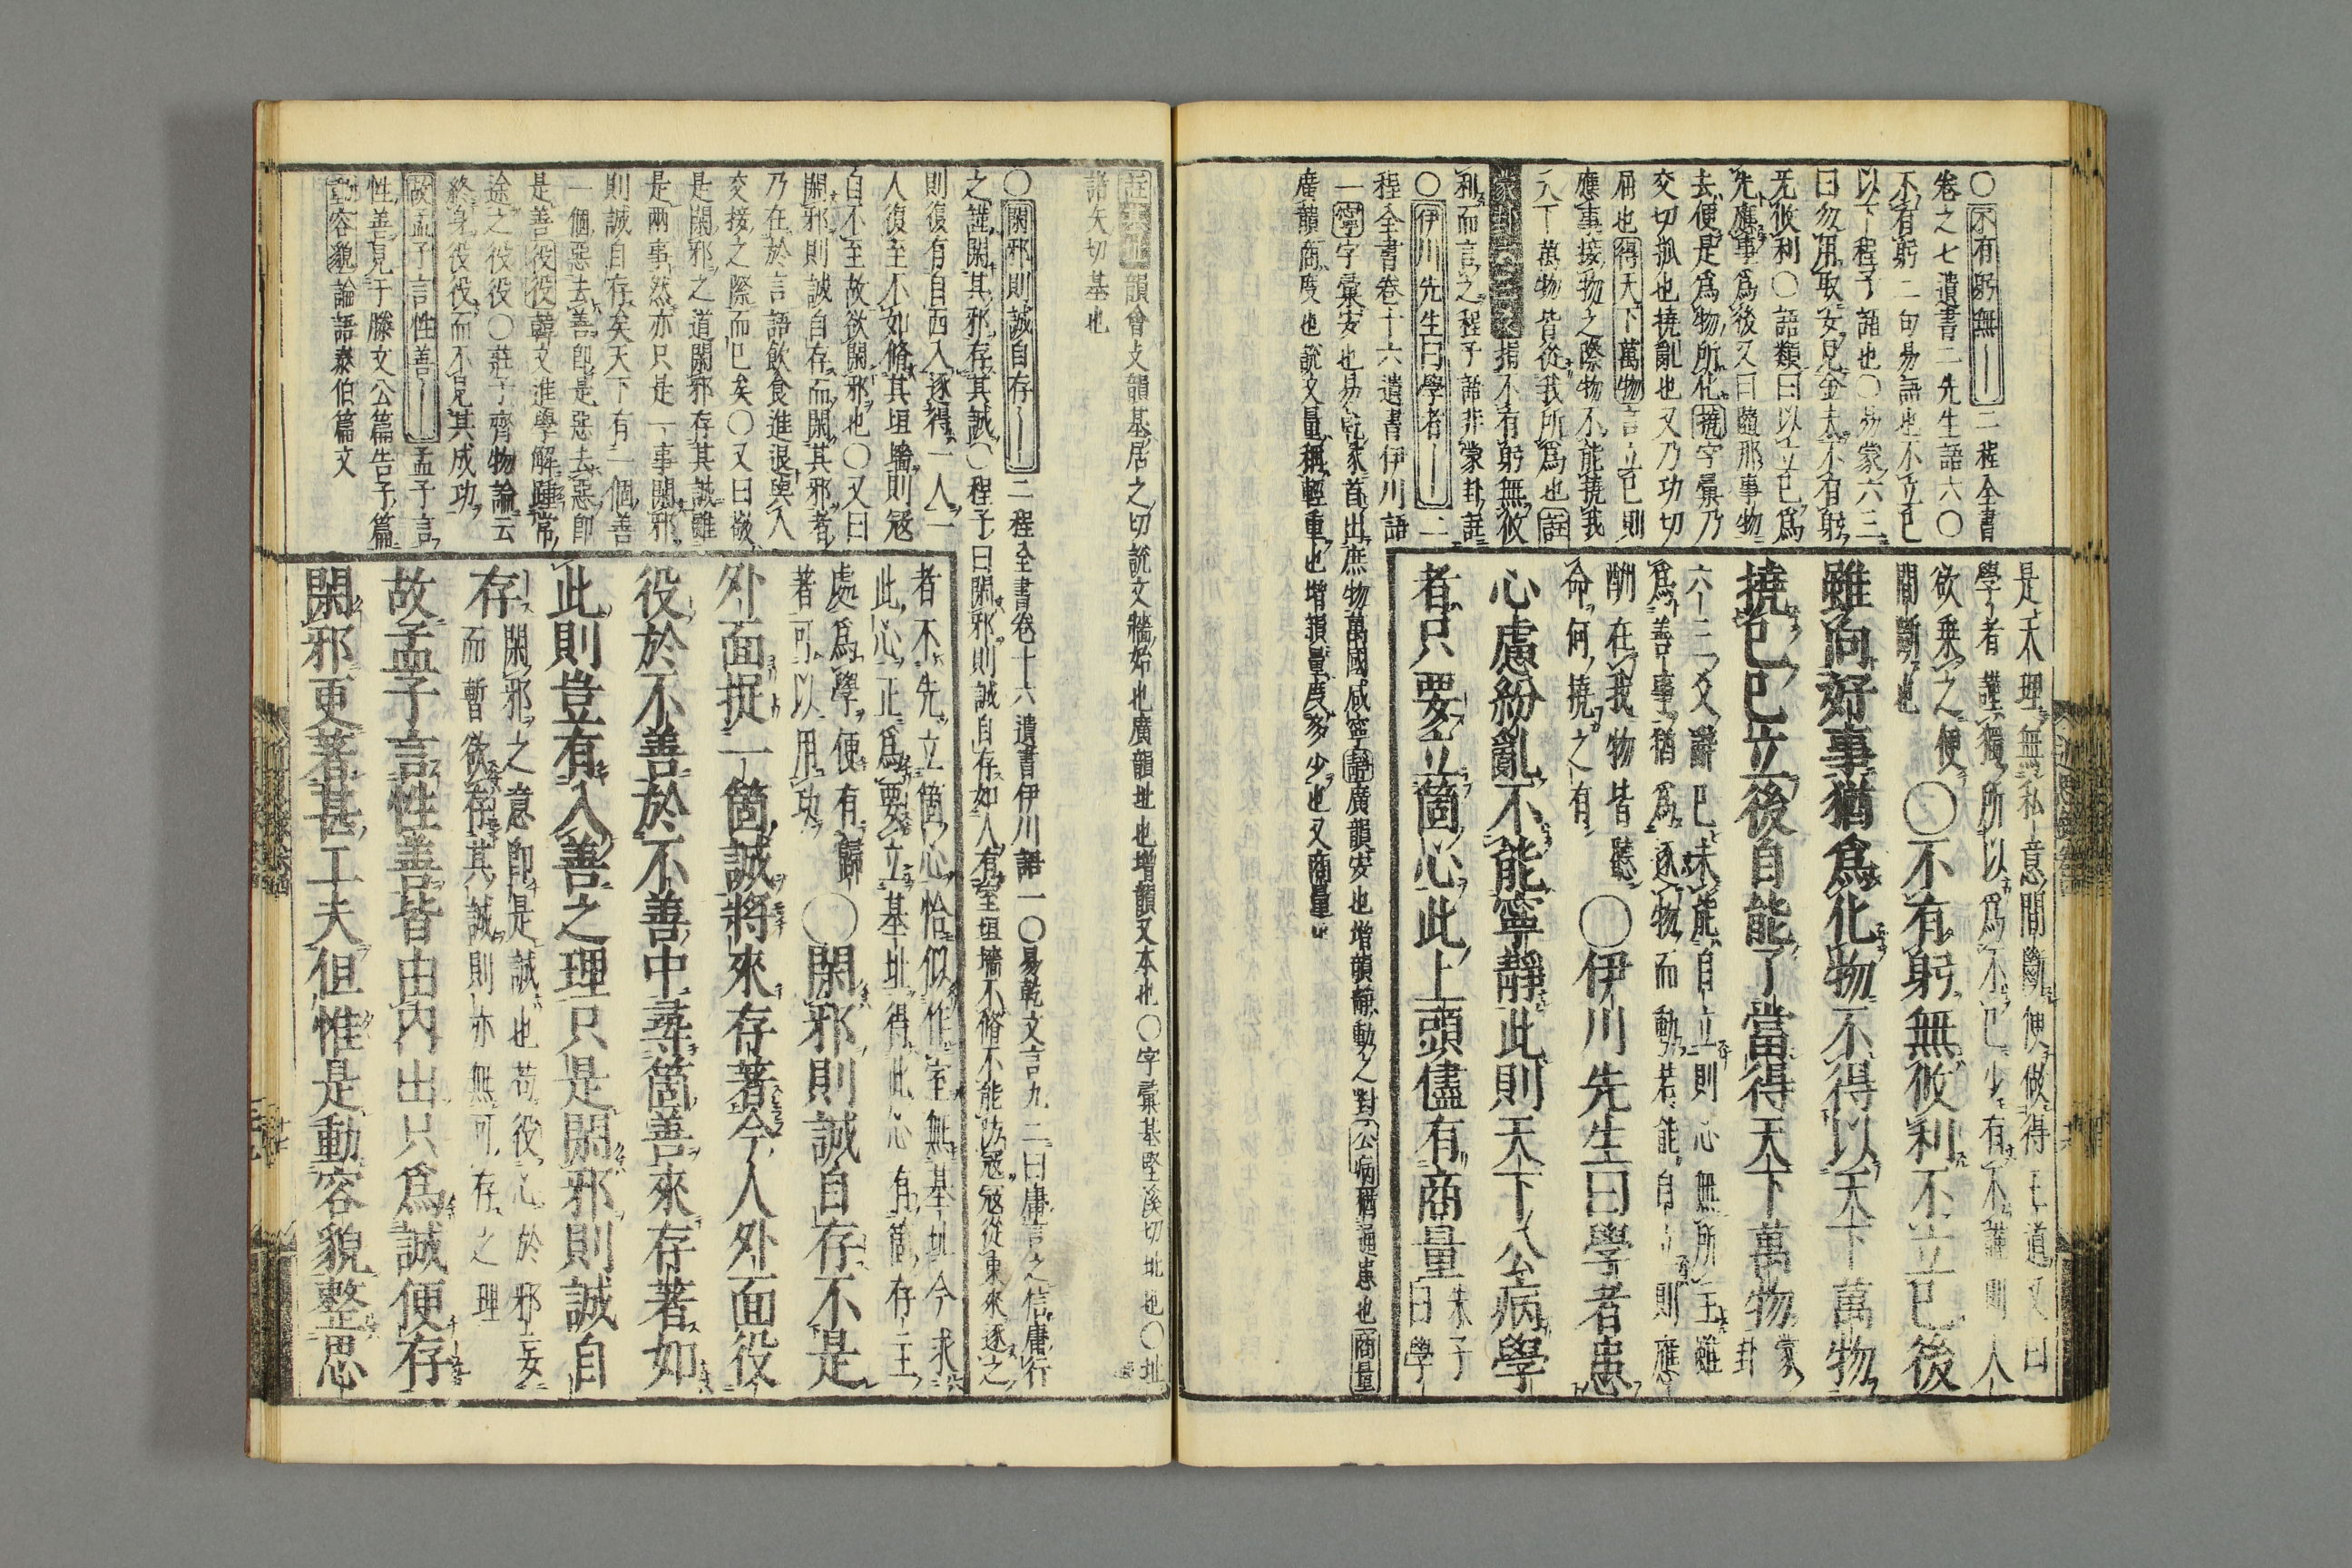 ○不有躬無――二程全書
卷之七遺書二先生語六○
不有躬二句易語也不立己
以下程子語也○易蒙六三
曰勿用取女見金夫不有躬
无攸利○語類曰以立己爲
先應事爲後又曰隨那事物
去便是爲物所化撓字彙乃
交切抓也撓亂也又乃功切
屈也得天下萬物言立己則
應事接物之際物不能撓我
天下萬物皆從我所爲也註
指不有躬無攸
利而言之程子語非蒙卦註
○伊川先生曰學者――二
程全書卷十六遺書伊川語
一寧字彙安也易乾家首出庶物萬國咸寧靜廣韻安也增韻靜動之對公病猶通患也商量
廣韻商度也說文量稱輕重也增韻量度多少也又商量
是天理無私意間斷便做得王道又曰
學者謹獨所以爲不已少有不謹則人
欲乘之便
間斷也○不有躬無攸利不立己後
雖向好事猶爲化物不得以天下萬物
撓己己立後自能了當得天下萬物蒙卦
六三爻辭己未能自立則心無所主雖
爲善事猶爲逐物而動若能自立則應
酬在我物皆聽
命何撓之有○伊川先生曰學者患
心慮紛亂不能寧靜此則天下公病學
者只要立箇心此上頭儘有商量朱子曰學
韻會丈韻基居之切說文牆始也廣韻址也增韻又本也○字彙基堅溪切址也○址
諸矢切基也
○閑邪則誠自存――二程全書卷十六遺書伊川語一○易乾文言九二曰庸言之信庸行
之謹閑其邪存其誠○程子曰閑邪則誠自存如人有室垣墻不脩不能防寇寇從東來逐之
則復有自西入逐得一人一
人復至不如脩其垣墻則寇
自不至故欲閑邪也○又曰
閑邪則誠自存而閑其邪者
乃在於言語飲食進退與人
交接之際而已矣○又曰敬
是閑邪之道閑邪存其誠雖
是兩事然亦只是一事閑邪
則誠自存矣天下有一個善
一個惡去善卽是惡去惡卽
是善役役韓文進學解踵常
途之役役○莊子齊物論云
終身役役而不見其成功
故孟子言性善――孟子言
性善見于滕文公篇告子篇
動容貌論語泰伯篇文
者不先立箇心恰似作室無基址今求
此心正爲要立基址得此心有箇存主
處爲學便有歸
著可以用功○閑邪則誠自存不是
外面捉一箇誠將來存著今人外面役
役於不善於不善中尋箇善來存著如
此則豈有入善之理只是閑邪則誠自
存閑邪之意卽是誠也苟役心於邪妄
而暫欲存其誠則亦無可存之理
故孟子言性善皆由內出只爲誠便存
閑邪更著甚工夫但惟是動容貌整思